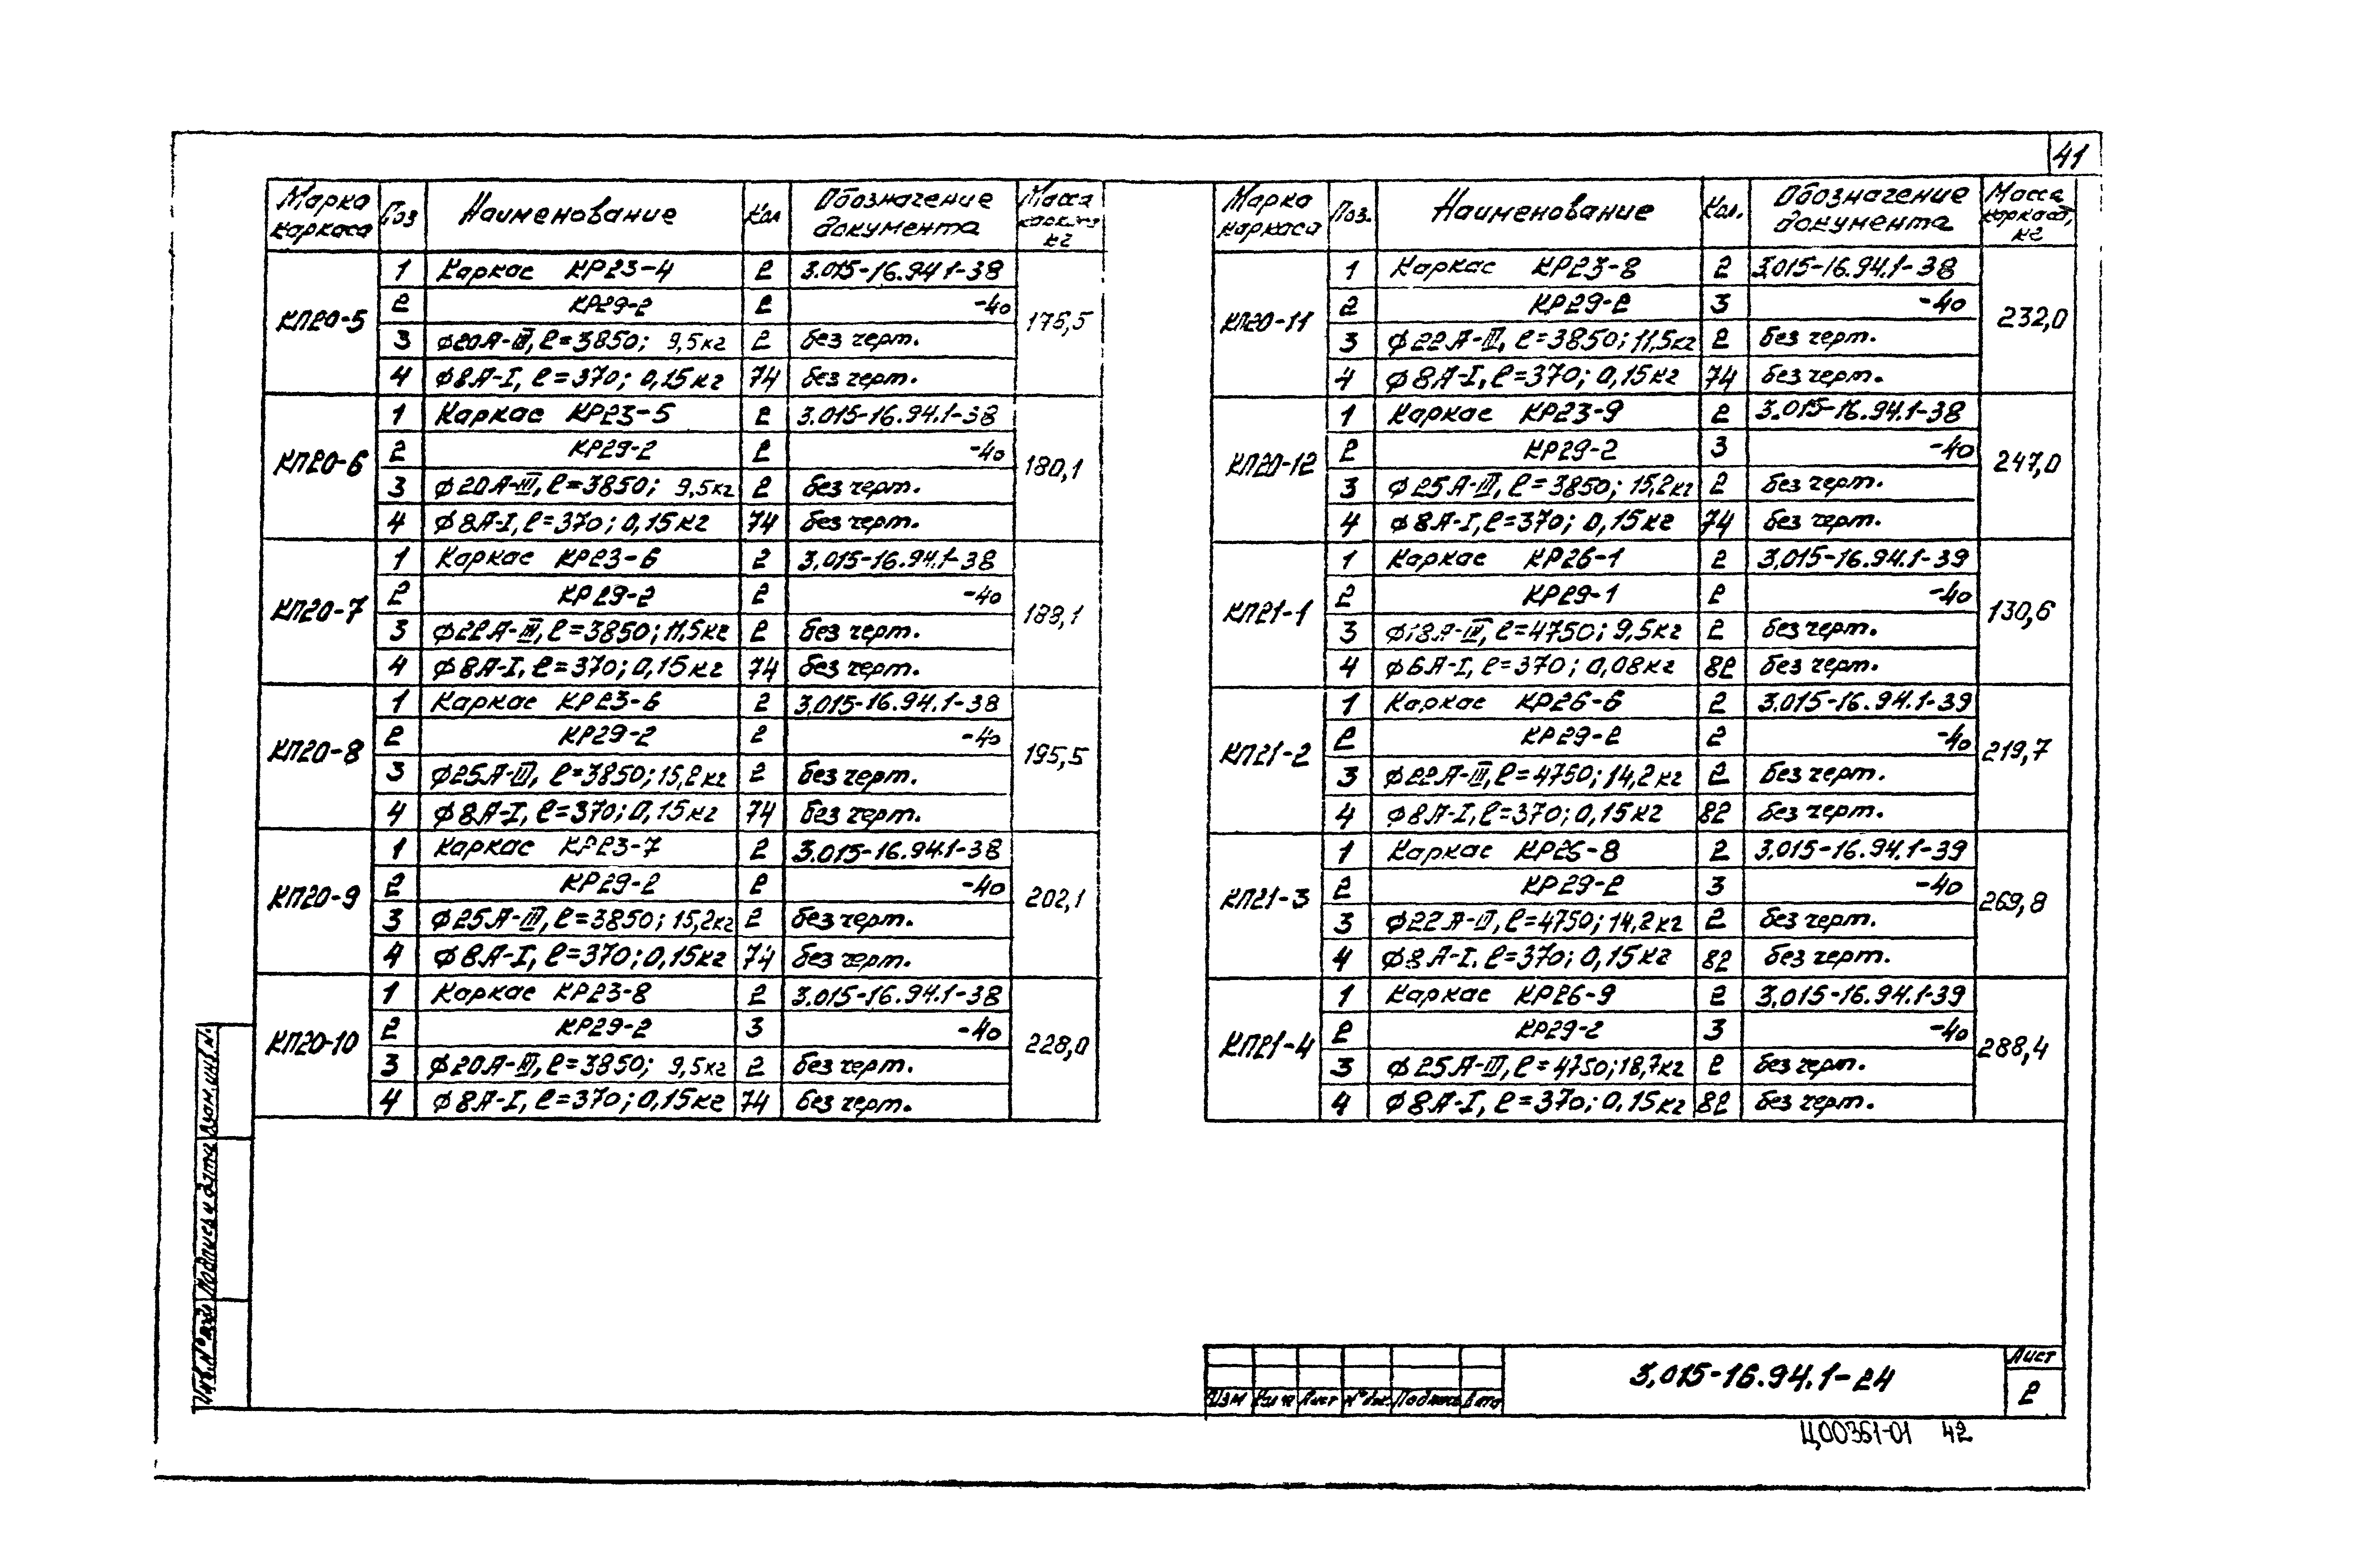 41
Марка каркаса Поз Наименование Кол Обозначение документа Масса каркаса кг
КП20-5 175,5
1 Каркас КР23-4 2 3.015-16.94.1-38
2 КР29-2 2 -40
3 Ф20А-III, l=3850; 9,5кг 2 без черт.
4 Ф8А-I, l=370; 0,15кг 74 без черт.
КП20-6 180,1
1 Каркас КР23-5 2 3.015-16.94.1-38
2 КР29-2 2 -40
3 Ф20А-III, l=3850; 9,5кг 2 без черт.
4 Ф8А-I, l=370; 0,15кг 74 без черт.
КП20-7 188,1
1 Каркас КР23-6 2 3.015-16.94.1-38
2 КР29-2 2 -40
3 Ф22А-III, l=3850; 11,5кг 2 без черт.
4 Ф8А-I, l=370; 0,15кг 74 без черт.
КП20-8 195,5
1 Каркас КР23-6 2 3.015-16.94.1-38
2 КР29-2 2 -40
3 Ф25А-III, l=3850; 15,2кг 2 без черт.
4 Ф8А-I, l=370; 0,15кг 74 без черт.
КП20-9 202,1
1 Каркас КР23-7 2 3.015-16.94.1-38
2 КР29-2 2 -40
3 Ф25А-III, l=3850; 15,2кг 2 без черт.
4 Ф8А-I, l=370; 0,15кг 74 без черт.
КП20-10 228,0
1 Каркас КР23-8 2 3.015-16.94.1-38
2 КР29-2 3 -40
3 Ф20А-III, l=3850; 9,5кг 2 без черт.
4 Ф8А-I, l=370; 0,15кг 74 без черт.
Марка каркаса Поз. Наименование Кол. Обозначение документа Масса каркаса, кг
КП20-11 232,0
1 Каркас КР23-8 2 3.015-16.94.1-38
2 КР29-2 3 -40
3 Ф22А-III, l=3850; 11,5кг 2 без черт.
4 Ф8А-I, l=370; 0,15кг 74 без черт.
КП20-12 247,0
1 Каркас КР23-9 2 3.015-16.94.1-38
2 КР29-2 3 -40
3 Ф25А-III, l=3850; 15,2кг 2 без черт.
4 Ф8А-I, l=370; 0,15кг 74 без черт.
КП21-1 130,6
1 Каркас КР26-1 2 3.015-16.94.1-39
2 КР29-1 2 -40
3 Ф18А-III, l=4750; 9,5кг 2 без черт.
4 Ф6А-I, l=370; 0,08кг 82 без черт.
КП21-2 219,7
1 Каркас КР26-6 2 3.015-16.94.1-39
2 КР29-2 2 -40
3 Ф22А-III, l=4750; 14,2кг 2 без черт.
4 Ф8А-I, l=370; 0,15кг 82 без черт.
КП21-3 269,8
1 Каркас КР26-8 2 3.015-16.94.1-39
2 КР29-2 3 -40
3 Ф22А-III, l=4750; 14,2кг 2 без черт.
4 Ф8А-I, l=370; 0,15кг 82 без черт.
КП21-4 288,4
1 Каркас КР26-9 2 3.015-16.94.1-39
2 КР29-2 3 -40
3 Ф25А-III, l=4750; 18,7кг 2 без черт.
4 Ф8А-I, l=370; 0,15кг 82 без черт.
Взам.инв.№
Подпись и дата
Инв.№ подл
Изм Кол уч Лист №док. Подпись Дата
3.015-16.94.1-24
Лист
2
Ц00351-01 42